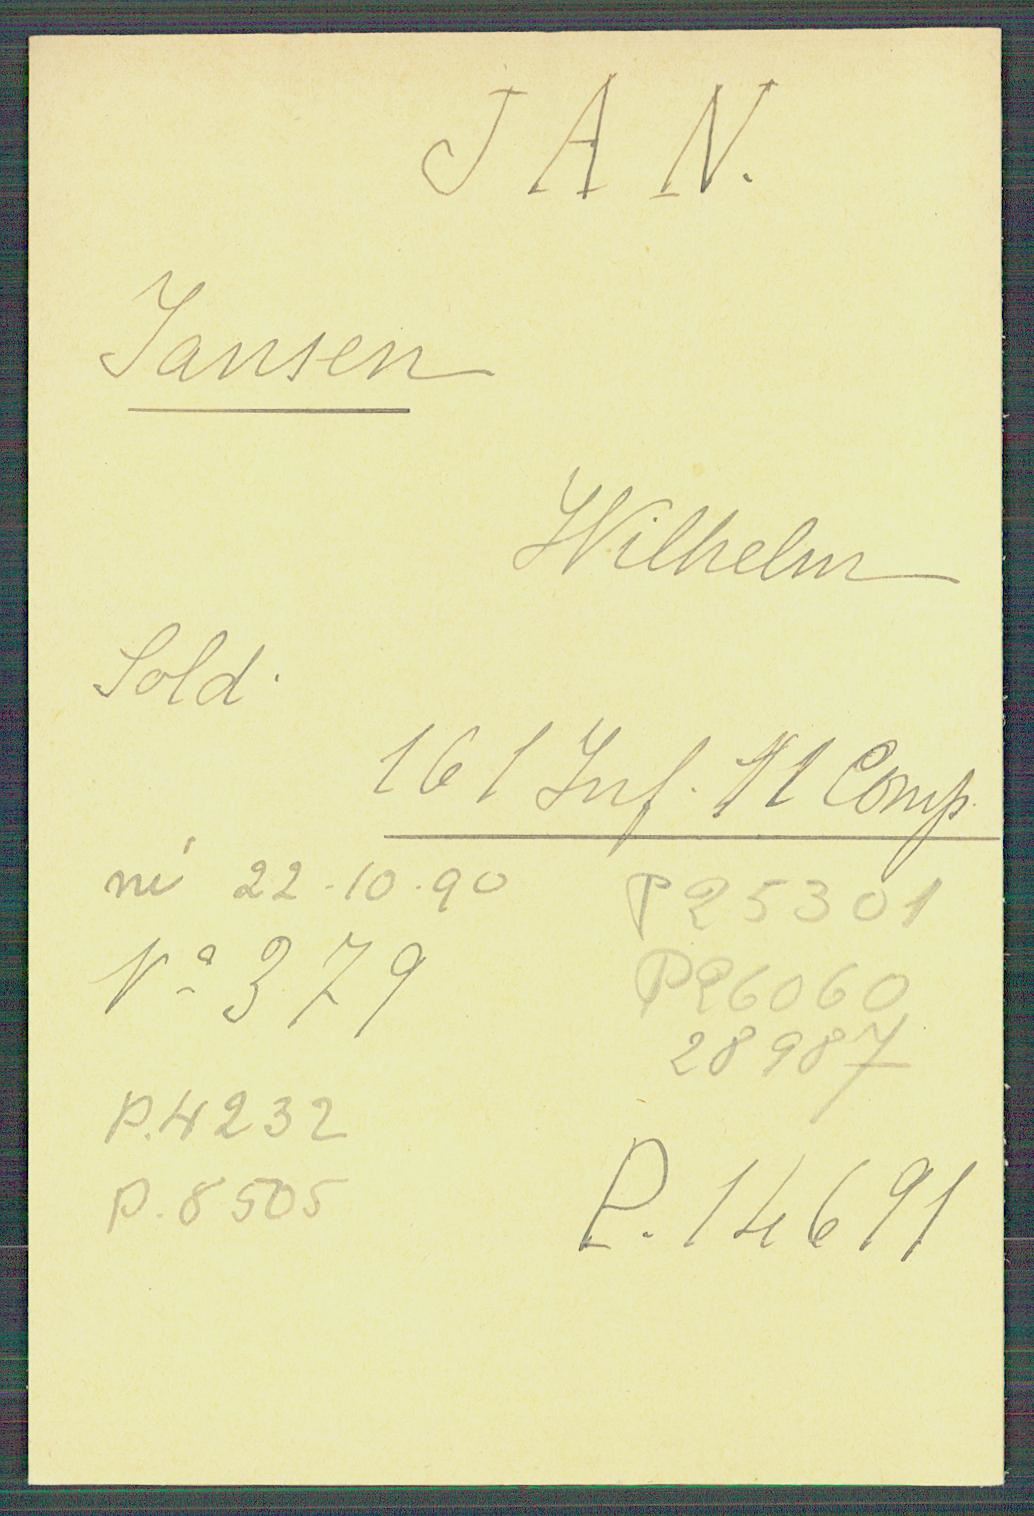 JAN.
Jansen
Wilhelm
Sold.
161 Inf. 11 Comp.
né 22.10.90
P 25301
Nº 379
P 26060
28987
P.4232
P.8505
P.14691